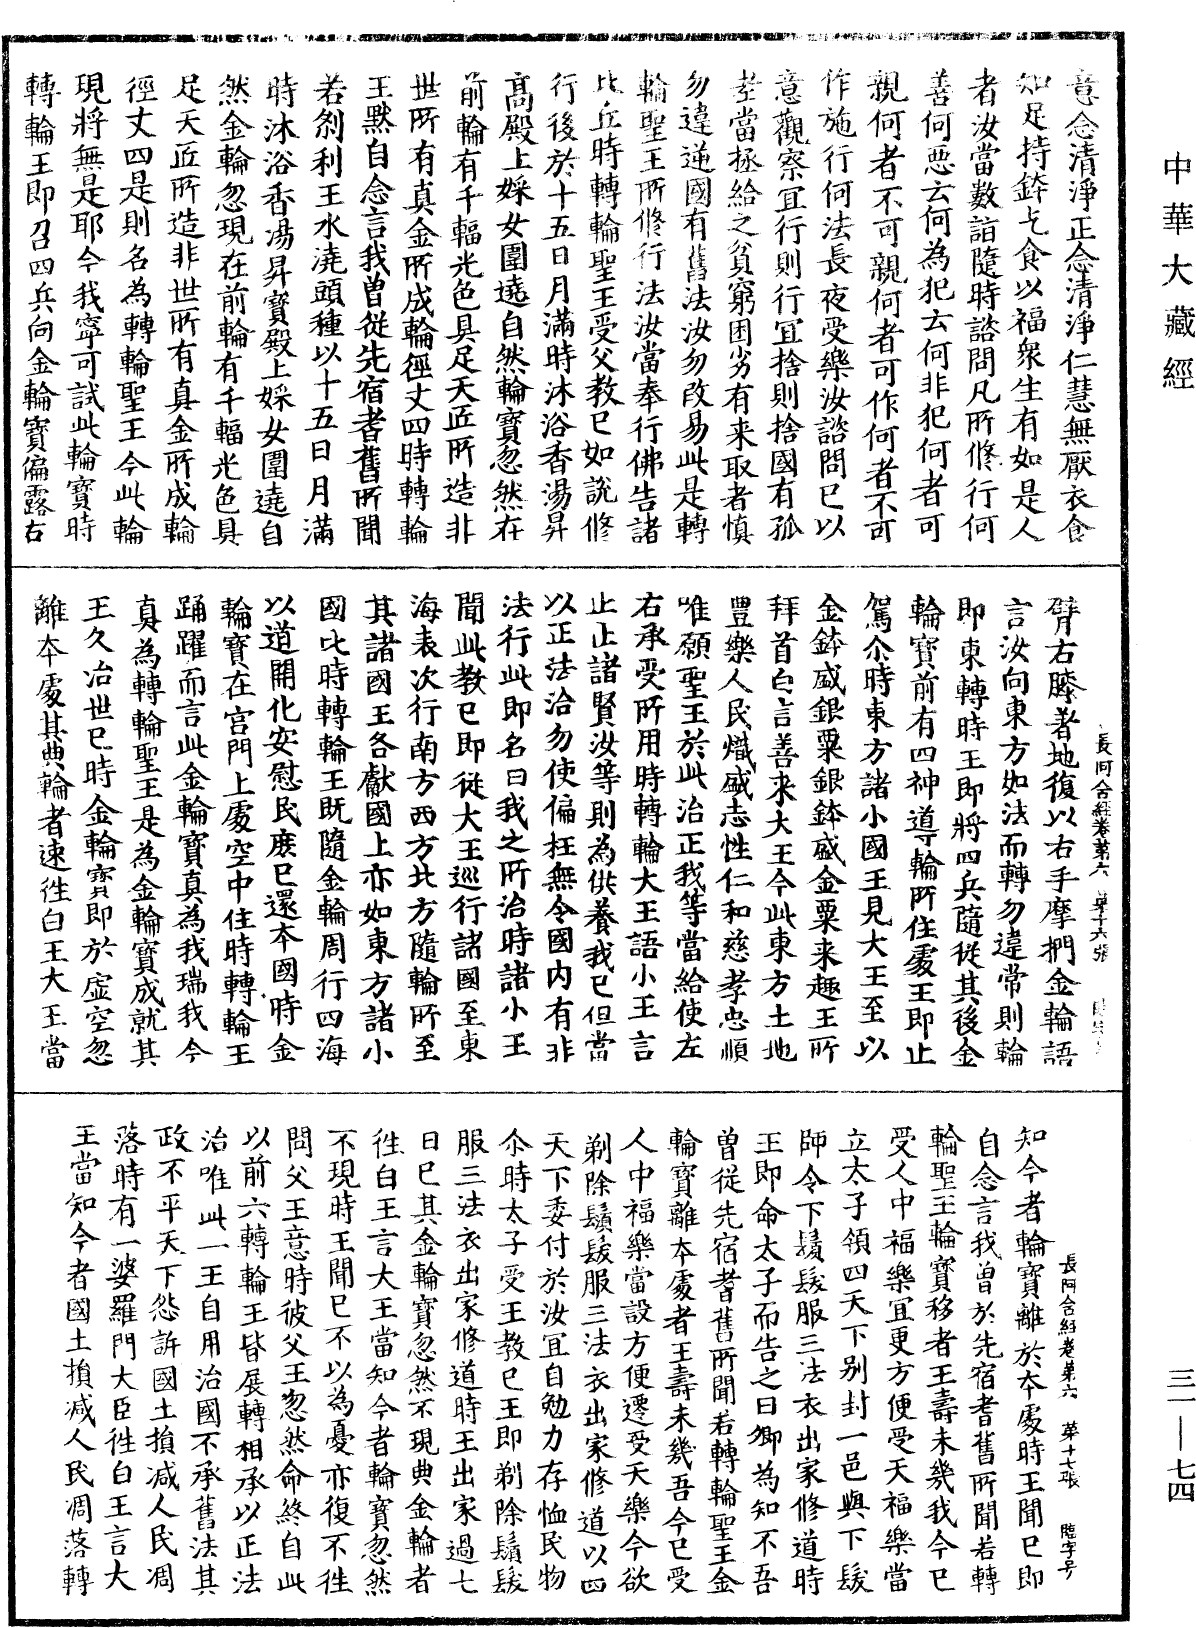 中華大藏經
意念清淨正念清淨仁慧無厭衣食
知足持鉢乞食以福衆生有如是人
者汝當數詣隨時諮問凡所修行何
善何惡云何為犯云何非犯何者可
親何者不可親何者可作何者不可
作施行何法長夜受樂汝諮問已以
意觀察宜行則行宜捨則捨國有孤
老當拯給之貧窮困劣有来取者慎
勿違逆國有舊法汝勿改易此是轉
輪聖王所修行法汝當奉行佛告諸
比丘時轉輪聖王受父教已如說修
行後於十五日月滿時沐浴香湯昇
高殿上婇女圍遶自然輪寶忽然在
前輪有千輻光色具足天匠所造非
世所有真金所成輪徑丈四時轉輪
王默自念言我曾從先宿耆舊所聞
若剎利王水澆頭種以十五日月滿
時沐浴香湯昇寶殿上婇女圍遶自
然金輪忽現在前輪有千輻光色具
足天匠所造非世所有真金所成輪
徑丈四是則名為轉輪聖王今此輪
現將無是耶今我寧可試此輪寶時
轉輪王即召四兵向金輪寶偏露右
長阿含經卷第六 第十六張
臂右膝著地復以右手摩捫金輪語
言汝向東方如法而轉勿違常則輪
即東轉時王即將四兵隨從其後金
輪寶前有四神導輪所住處王即止
駕尒時東方諸小國王見大王至以
金鉢盛銀粟銀鉢盛金粟来趣王所
拜首白言善来大王今此東方土地
豐樂人民熾盛志性仁和慈孝忠順
唯願聖王於此治正我等當給使左
右承受所用時轉輪大王語小王言
止止諸賢汝等則為供養我已但當
以正法治勿使偏枉無令國内有非
法行此即名曰我之所治時諸小王
聞此教已即從大王巡行諸國至東
海表次行南方西方北方隨輪所至
其諸國王各獻國土亦如東方諸小
國比時轉輪王既隨金輪周行四海
以道開化安慰民庶已還本國時金
輪寶在宫門上處空中住時轉輪王
踊躍而言此金輪寶真為我瑞我今
真為轉輪聖王是為金輪寶成就其
王久治世已時金輪寶即於虚空忽
離本處其典輪者速往白王大王當
長阿含經卷第六 第十七張 臨字号
知今者輪寶離於本處時王聞已即
自念言我曾於先宿耆舊所聞若轉
輪聖王輪寶移者王壽未幾我今已
受人中福樂宜更方便受天福樂當
立太子領四天下别封一邑與下髮
師令下鬚髮服三法衣出家修道時
王即命太子而告之曰卿為知不吾
曾從先宿耆舊所聞若轉輪聖王金
輪寶離本處者王壽未幾吾今已受
人中福樂當設方便遷受天樂今欲
剃除鬚髮服三法衣出家修道以四
天下委付於汝宜自勉力存恤民物
尒時太子受王教已王即剃除鬚髮
服三法衣出家修道時王出家過七
日已其金輪寶忽然不現典金輪者
往白王言大王當知今者輪寶忽然
不現時王聞已不以為憂亦復不往
問父王意時彼父王忽然命終自此
以前六轉輪王皆展轉相承以正法
治唯此一王自用治國不承舊法其
政不平天下怨訴國土損減人民凋
落時有一婆羅門大臣往白王言大
王當知今者國土損減人民凋落轉
三一—七四